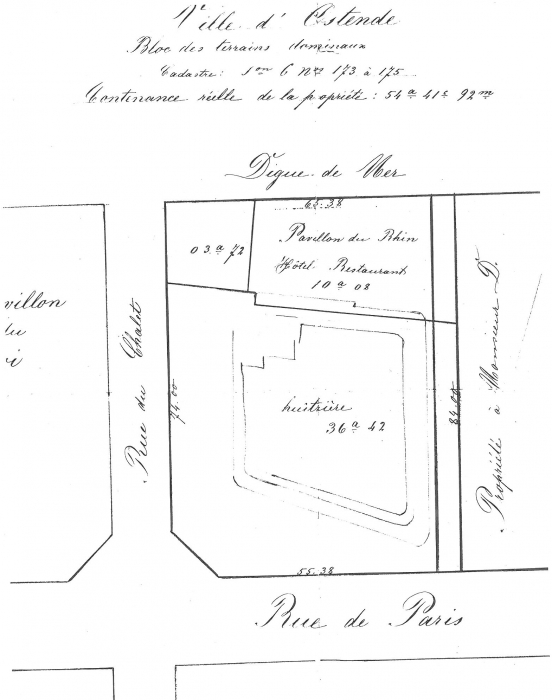 Ville d'Ostende
Bloc des terrains dominiaux
Cadastre: Son C Nos 173 à 175
Contenance réelle de la propriété: 54a 41c 92m
Digue de Mer
65.38
03.a 72
Pavillon du Rhin
Hôtel Restaurant
10a 08
villon
du
i
Rue du Chalet
74.00
huitrière
36a 42
84.00
Propriété à Monsieur D.
55.38
Rue de Paris